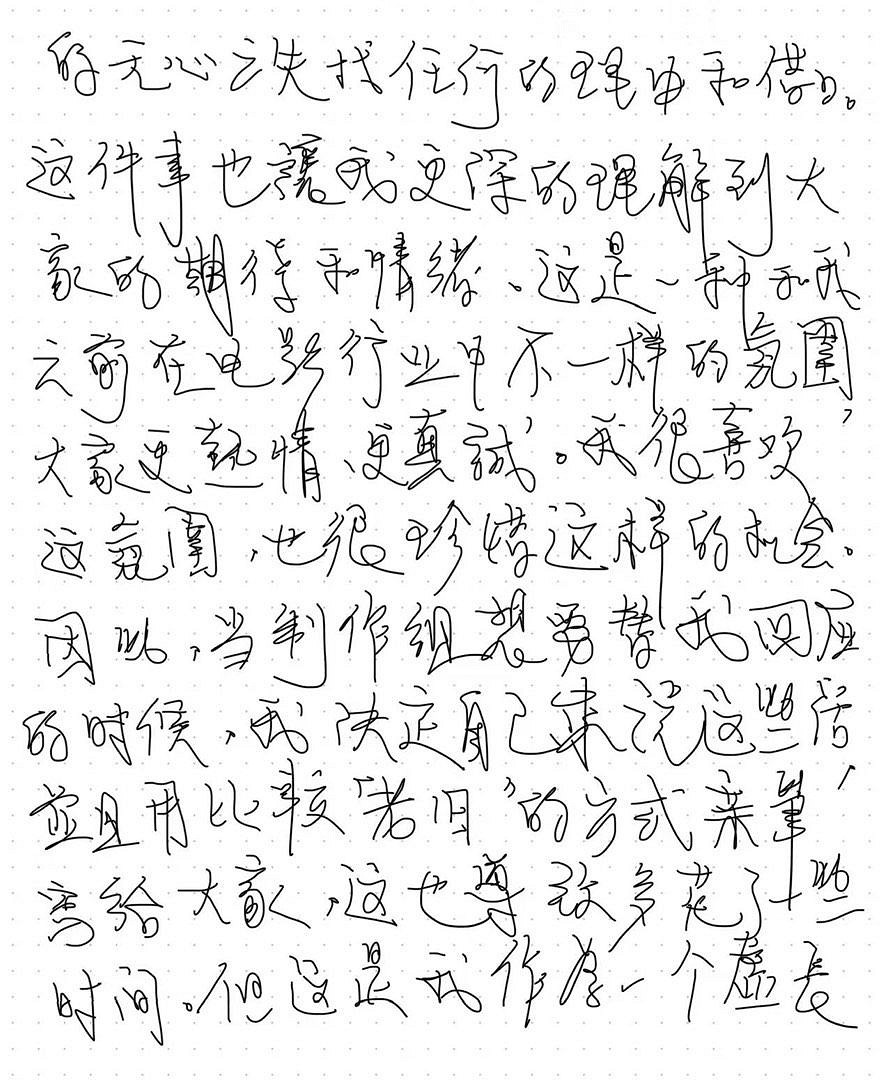 的无心之失找任何的理由和借口。
这件事也讓我更深的理解到大
家的期待和情绪、这是一种和我
之前在电影行业中不一样的氛圍
大家更熱情、更真誠，。我很喜欢，
这氛圍，也很珍惜这样的机会。
因此，当制作组想要替我回应
的时候，我决定自己来说这些话
並且用比較“老旧”的方式亲筆，
寫給大家，这也導致多花了一些
时间。但这是我作為一个虛長